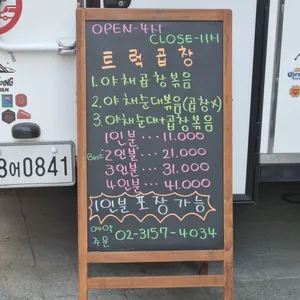 OPEN-4시
CLOSE-11시
트럭곱창
1.야채곱창볶음
2.야채순대볶음(곱창X)
3.야채순대+곱창볶음
1인분...11.000
Best 2인분...21.000
3인분...31.000
4인분...41.000
1인분 포장가능
예약
주문 02-3157-4034
8어0841